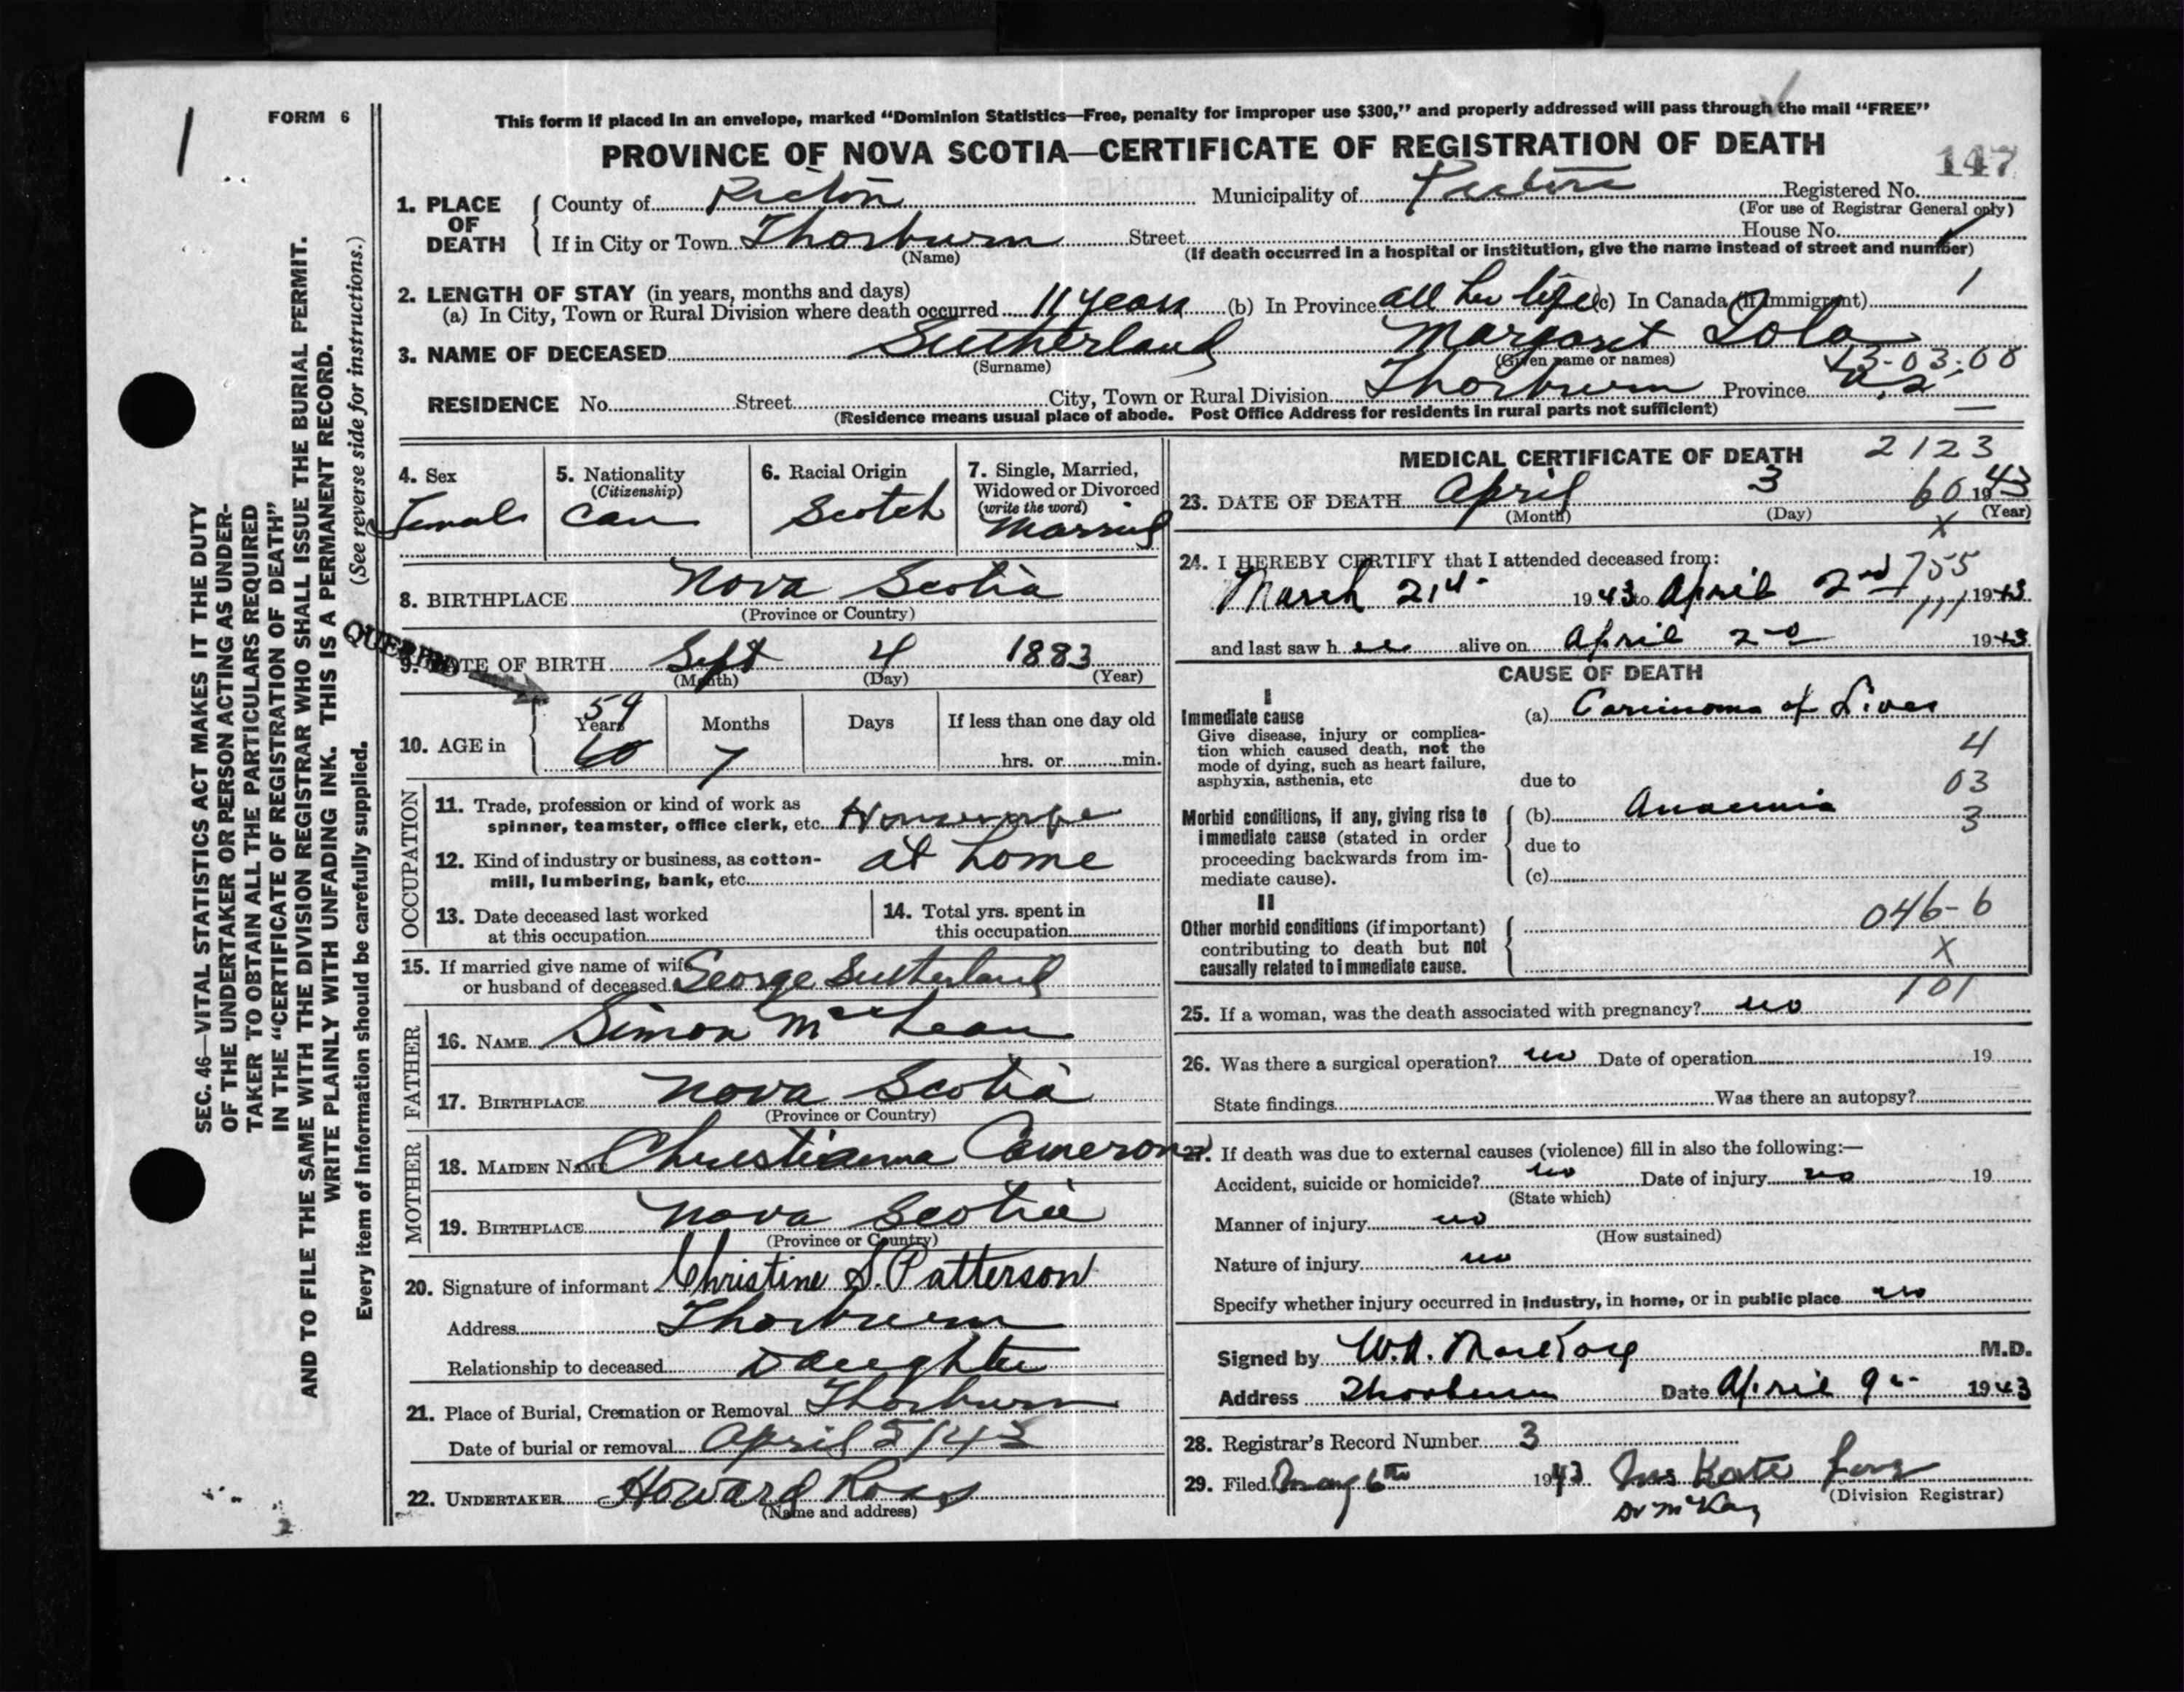 FORM 6
This form if placed in an envelope, marked "Dominion Statistics—Free, penalty for improper use $300," and properly addressed will pass through the mail "FREE"
PROVINCE OF NOVA SCOTIA—CERTIFICATE OF REGISTRATION OF DEATH
147
1. PLACE OF DEATH
County of Pictou Municipality of Pictou Registered No.
(For use of Registrar General only)
If in City or Town Thorburn Street House No.
(Name) (If death occurred in a hospital or institution, give the name instead of street and number)
2. LENGTH OF STAY (in years, months and days)
(a) In City, Town or Rural Division where death occurred 11 years (b) In Province all her life (c) In Canada (if immigrant) 1
3. NAME OF DECEASED Sutherland Margaret Lola
(Surname) (Given name or names)
13-03-00
RESIDENCE No. Street City, Town or Rural Division Thorburn Province N.S.
(Residence means usual place of abode. Post Office Address for residents in rural parts not sufficient)
4. Sex Female
5. Nationality (Citizenship) Can
6. Racial Origin Scotch
7. Single, Married, Widowed or Divorced (write the word) Married
8. BIRTHPLACE Nova Scotia
(Province or Country)
QUERIED
9. DATE OF BIRTH Sept 4 1883
(Month) (Day) (Year)
10. AGE in Years 59 60 Months 7 Days If less than one day old hrs. or min.
OCCUPATION
11. Trade, profession or kind of work as spinner, teamster, office clerk, etc. Housewife
12. Kind of industry or business, as cotton-mill, lumbering, bank, etc. at home
13. Date deceased last worked at this occupation
14. Total yrs. spent in this occupation
15. If married give name of wife or husband of deceased George Sutherland
FATHER
16. NAME Simon McLean
17. BIRTHPLACE Nova Scotia
(Province or Country)
MOTHER
18. MAIDEN NAME Christianna Cameron
19. BIRTHPLACE Nova Scotia
(Province or Country)
20. Signature of informant Christine S. Patterson
Address Thorburn
Relationship to deceased Daughter
21. Place of Burial, Cremation or Removal Thorburn
Date of burial or removal April 5/43
22. UNDERTAKER Howard Ross
(Name and address)
MEDICAL CERTIFICATE OF DEATH 2123
23. DATE OF DEATH April 3 60 1943
(Month) (Day) (Year)
X
24. I HEREBY CERTIFY that I attended deceased from:
755
March 21st 1943 to April 2nd 1943
111
and last saw her alive on April 2nd 1943
CAUSE OF DEATH
I
Immediate cause
Give disease, injury or complication which caused death, not the mode of dying, such as heart failure, asphyxia, asthenia, etc
(a) Carcinoma of Liver
4
due to
03
Morbid conditions, if any, giving rise to immediate cause (stated in order proceeding backwards from immediate cause).
(b) Anaemia
3
due to
(c)
II
Other morbid conditions (if important) contributing to death but not causally related to immediate cause.
046-6
X
101
25. If a woman, was the death associated with pregnancy? no
26. Was there a surgical operation? no Date of operation 19
State findings Was there an autopsy?
27. If death was due to external causes (violence) fill in also the following:—
Accident, suicide or homicide? no Date of injury no 19
(State which)
Manner of injury no
(How sustained)
Nature of injury no
Specify whether injury occurred in industry, in home, or in public place no
Signed by W.A. MacKay M.D.
Address Thorburn Date April 9 1943
28. Registrar's Record Number 3
29. Filed May 6th 1943 Mrs Kate
(Division Registrar)
Dr McKay
SEC. 46—VITAL STATISTICS ACT MAKES IT THE DUTY
OF THE UNDERTAKER OR PERSON ACTING AS UNDER-
TAKER TO OBTAIN ALL THE PARTICULARS REQUIRED
IN THE "CERTIFICATE OF REGISTRATION OF DEATH"
AND TO FILE THE SAME WITH THE DIVISION REGISTRAR WHO SHALL ISSUE THE BURIAL PERMIT.
WRITE PLAINLY WITH UNFADING INK. THIS IS A PERMANENT RECORD.
Every item of information should be carefully supplied. (See reverse side for instructions.)